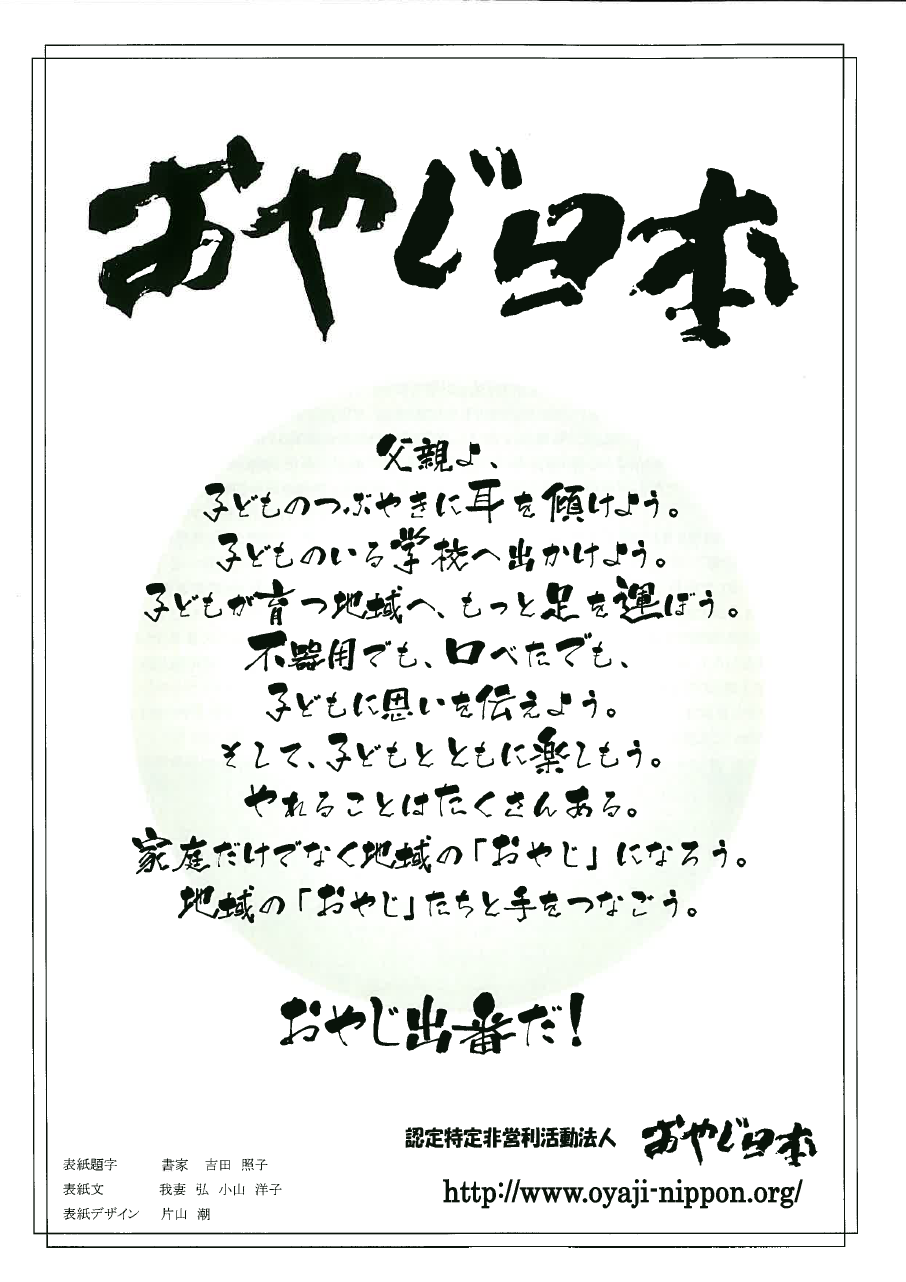 おやじ日本
父親よ、
子どものつぶやきに耳を傾けよう。
子どものいる学校へ出かけよう。
子どもが育つ地域へ、もっと足を運ぼう。
不器用でも、口べたでも、
子どもに思いを伝えよう。
そして、子どもとともに楽しもう。
やれることはたくさんある。
家庭だけでなく地域の「おやじ」になろう。
地域の「おやじ」たちと手をつなごう。
おやじ出番だ！
認定特定非営利活動法人 おやじ日本
http://www.oyaji-nippon.org/
表紙題字 書家 吉田 照子
表紙文 我妻 弘 小山 洋子
表紙デザイン 片山 潮